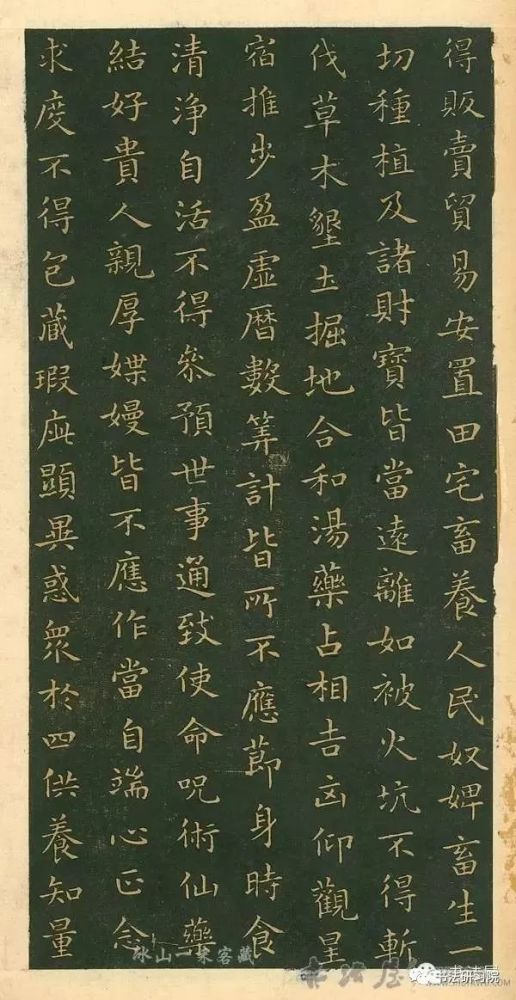 得販賣貿易安置田宅畜養人民奴婢畜生一
切種植及諸財寶皆當遠離如被火坑不得斬
伐草木墾土掘地合和湯藥占相吉凶仰觀星
宿推步盈虛曆數筭計皆所不應節身時食
清淨自活不得參預世事通致使命呪術仙藥
結好貴人親厚媟嫚皆不應作當自端心正念
求度不得包藏瑕疵顯異惑眾於四供養知量
书法研究院